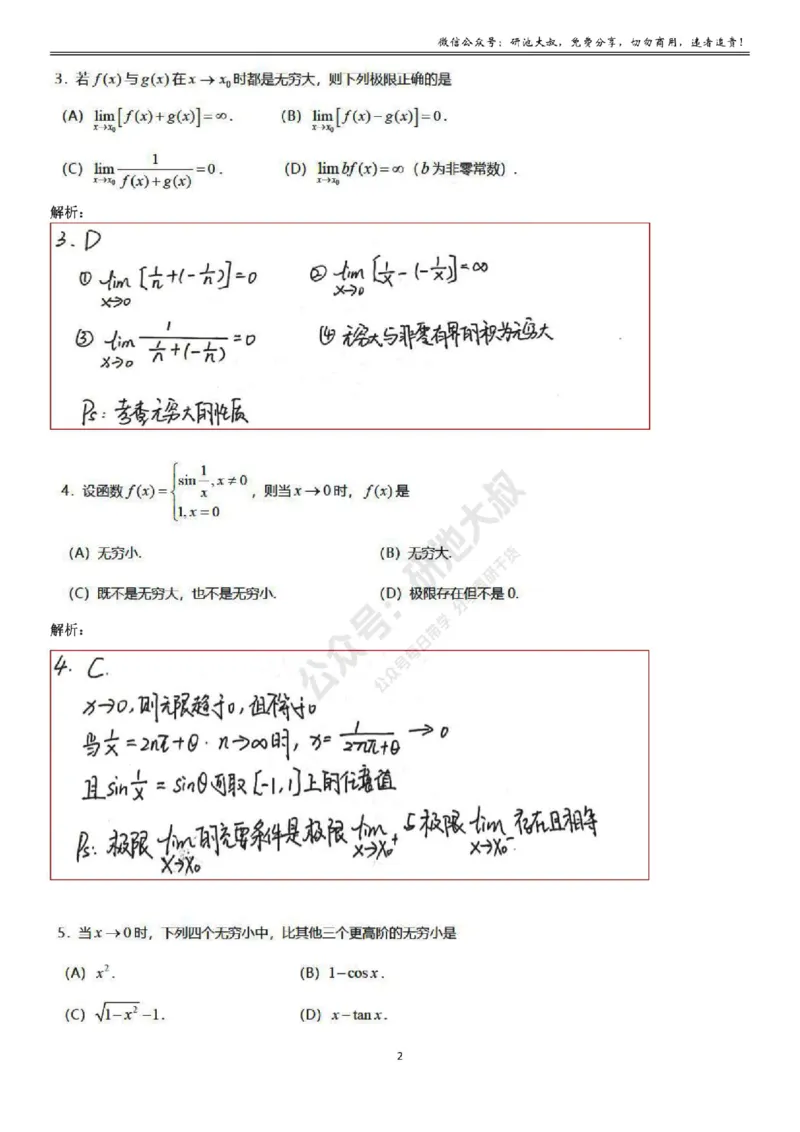 微信公众号：研池大叔，免费分享，切勿商用，违者追责！
3．若 f(x) 与 g(x) 在 x → x₀ 时都是无穷大，则下列极限正确的是
(A) lim_{x→x₀} [f(x)+g(x)]=∞． (B) lim_{x→x₀} [f(x)−g(x)]=0．
(C) lim_{x→x₀} 1/(f(x)+g(x)) =0． (D) lim_{x→x₀} bf(x)=∞（b 为非零常数）．
解析：
3. D
① lim_{x→0} [1/n+(-1/n)]=0 ② lim_{x→0} [1/x-(-1/x)]=∞
③ lim_{x→0} 1/(1/n+(-1/n)) =0 ④ 无穷大与非零有界的积为无穷大
Ps：考查无穷大的性质
4．设函数 f(x)={sin 1/x, x≠0 1, x=0 ，则当 x→0 时，f(x) 是
(A) 无穷小. (B) 无穷大.
(C) 既不是无穷大，也不是无穷小. (D) 极限存在但不是 0.
解析：
4. C.
x→0，则无限趋于0，且不等于0
当 1/x =2nπ+θ · n→∞时，x= 1/(2nπ+θ) →0
且 sin 1/x = sinθ 可取 [-1,1]上的任意值
Ps：极限 lim_{x→x₀} 的充要条件是极限 lim_{x→x₀⁺} 与极限 lim_{x→x₀⁻} 存在且相等
5．当 x→0 时，下列四个无穷小中，比其他三个更高阶的无穷小是
(A) x²． (B) 1−cos x．
(C) √(1−x²) −1． (D) x−tan x．
2
公众号：研池大叔